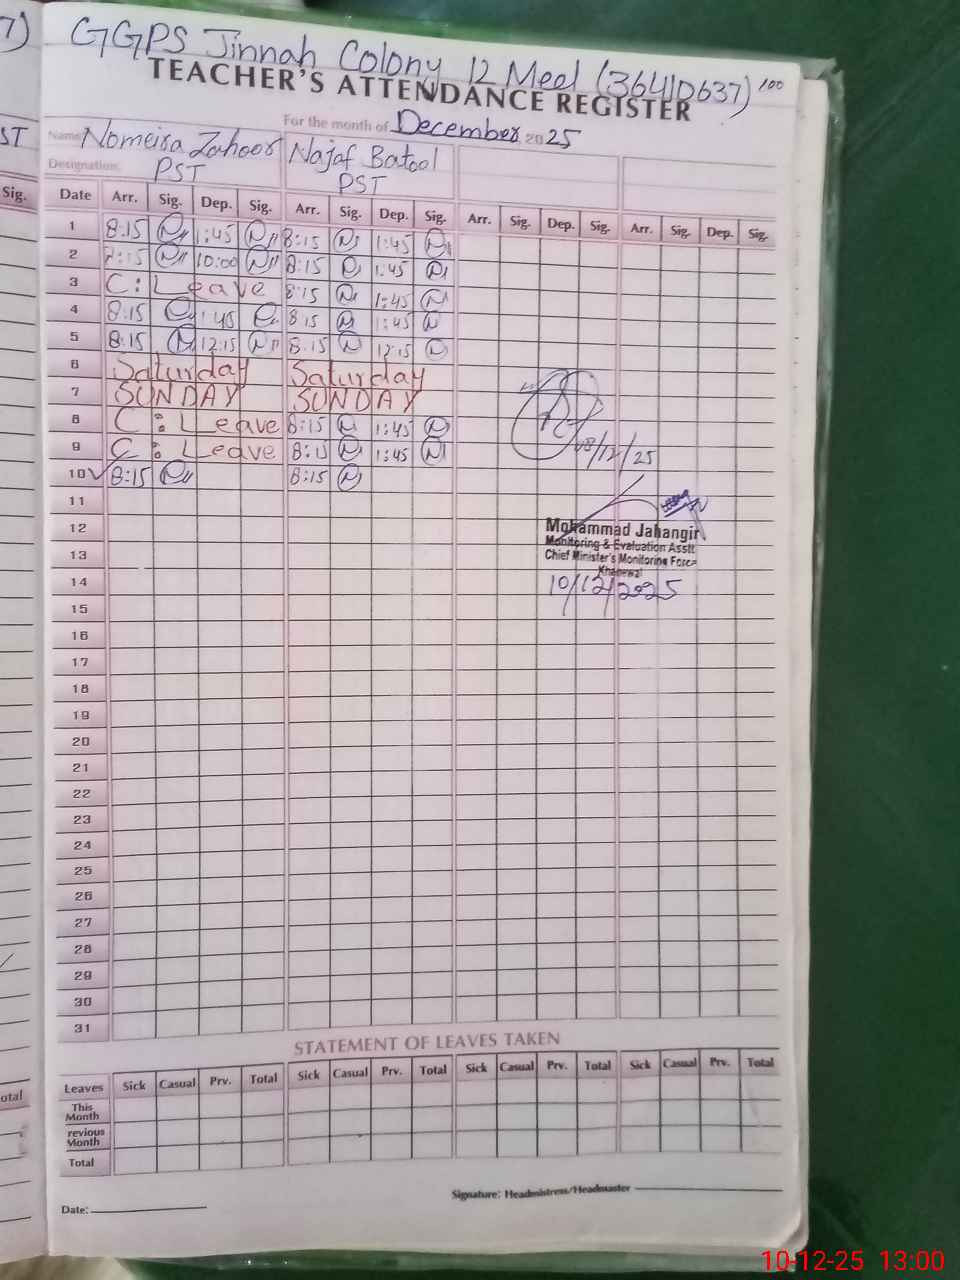 7)
GGPS Jinnah Colony 12 Meel (36410637) 100
TEACHER'S ATTENDANCE REGISTER
For the month of December, 2025
ST
Name Nomeira Zahoor Najaf Batool
Designation PST PST
Sig.
Date Arr. Sig. Dep. Sig. Arr. Sig. Dep. Sig. Arr. Sig. Dep. Sig. Arr. Sig. Dep. Sig.
1 8:15 1:45 8:15 1:45
2 8:15 10:00 8:15 1:45
3 C: Leave 8:15 1:45
4 8:15 1:45 8:15 1:45
5 8:15 12:15 8:15 12:15
6 Saturday Saturday
7 SUNDAY SUNDAY
8 C: Leave 8:15 1:45
08/12/25
9 C: Leave 8:15 1:45
10 8:15 8:15
11
12
Mohammad Jahangir
Monitoring & Evaluation Asstt
13
Chief Minister's Monitoring Force
Khanewal
14
10/12/2025
15
16
17
18
19
20
21
22
23
24
25
26
27
28
29
30
31
STATEMENT OF LEAVES TAKEN
Leaves Sick Casual Prv. Total Sick Casual Prv. Total Sick Casual Prv. Total Sick Casual Prv. Total
otal
This
Month
revious
Month
Total
Signature: Headmistress/Headmaster
Date:
10-12-25 13:00